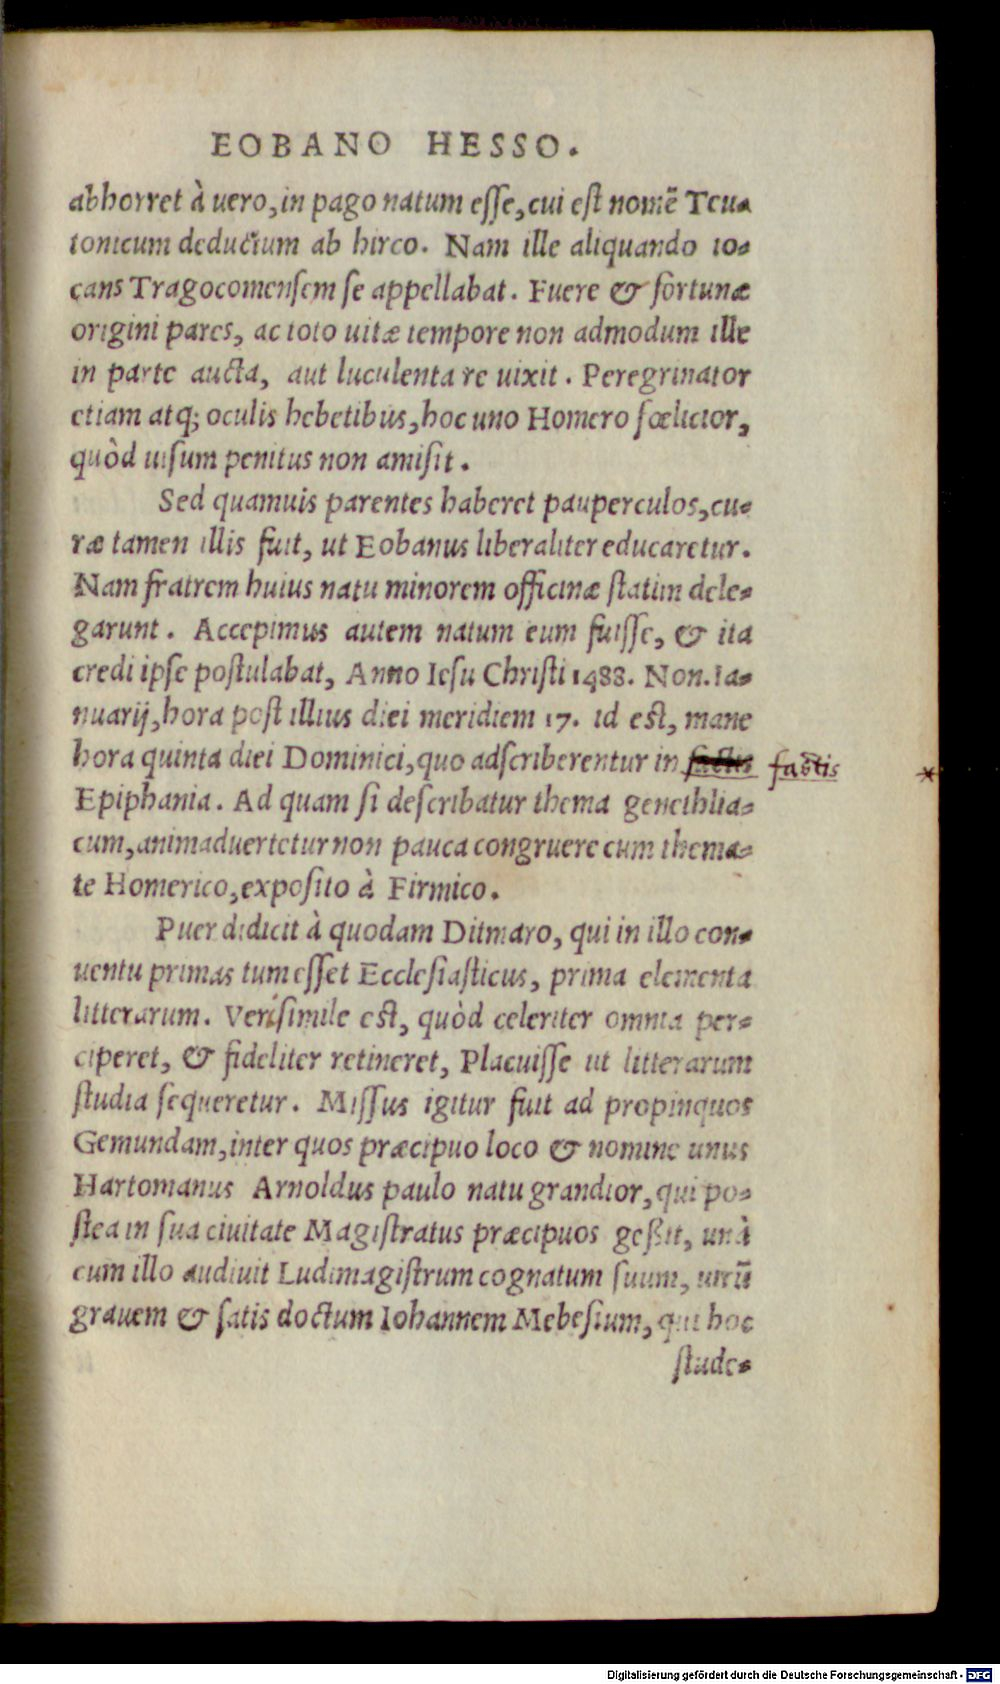 EOBANO HESSO.
abhorret à uero, in pago natum esse, cui est nomẽ Teu-
tonicum deductum ab hirco. Nam ille aliquando io-
cans Tragocomensem se appellabat. Fuere & fortunæ
origini pares, ac toto uitæ tempore non admodum ille
in parte aucta, aut luculenta re uixit. Peregrinator
etiam atq; oculis hebetibus, hoc uno Homero fœlicior,
quòd uisum penitus non amisit.
Sed quamuis parentes haberet pauperculos, cu-
ræ tamen illis fuit, ut Eobanus liberaliter educaretur.
Nam fratrem huius natu minorem officinæ statim dele-
garunt. Accepimus autem natum eum fuisse, & ita
credi ipse postulabat, Anno Iesu Christi 1488. Non. Ia-
nuarij, hora post illius diei meridiem 17. id est, mane
hora quinta diei Dominici, quo adscriberentur in factis fastis *
Epiphania. Ad quam si describatur thema genethlia-
cum, animaduertetur non pauca congruere cum thema-
te Homerico, exposito à Firmico.
Puer didicit à quodam Ditmaro, qui in illo con-
uentu primas tum esset Ecclesiasticus, prima elementa
litterarum. Verisimile est, quòd celeriter omnia per-
ciperet, & fideliter retineret, Placuisse ut litterarum
studia sequeretur. Missus igitur fuit ad propinquos
Gemundam, inter quos præcipuo loco & nomine unus
Hartomanus Arnoldus paulo natu grandior, qui po-
stea in sua ciuitate Magistratus præcipuos geßit, unà
cum illo audiuit Ludimagistrum cognatum suum, uirũ
grauem & satis doctum Iohannem Mebesium, qui hoc
stude-
Digitalisierung gefördert durch die Deutsche Forschungsgemeinschaft - DFG